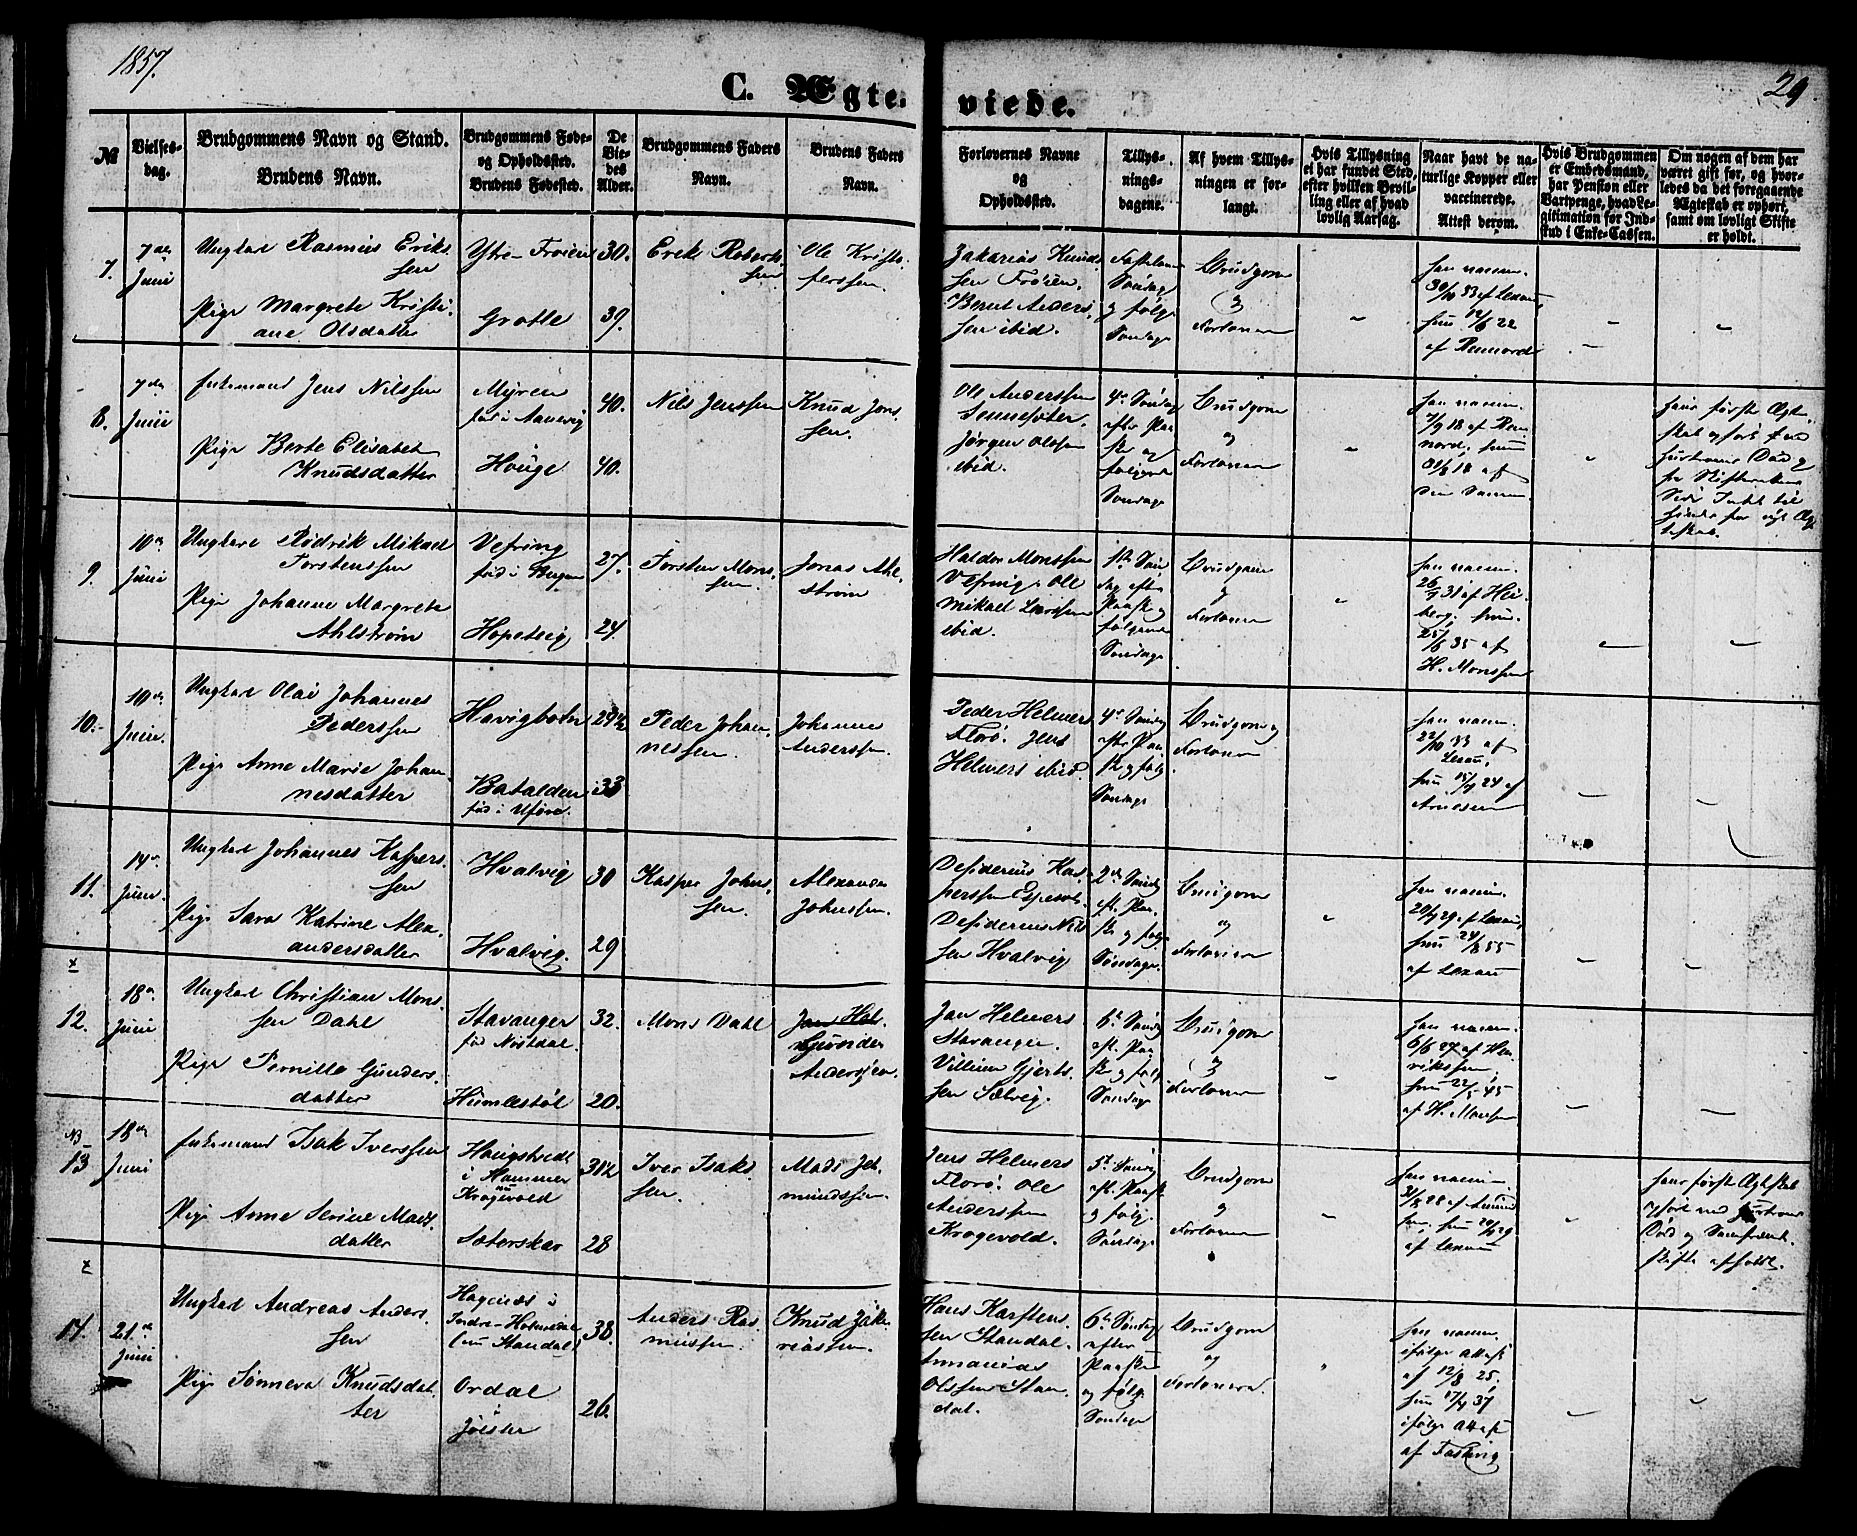 1857.
29
C. Ægte-
viede.
№
Vielses-
dag.
Brudgommens Navn og Stand.
Brudens Navn.
Brudgommens Føde-
og Opholdssted.
Brudens Fødested.
De
Vie-
des
Alder.
Brudgommens Faders
Navn.
Brudens Faders
Navn.
Forlovernes Navne
og
Opholdssted.
Tillys-
nings-
dagene.
Af hvem Tillys-
ningen er for-
langt.
Hvis Tillysning
ei har fundet Sted,
efter hvilken Bevil-
ling eller af hvad
lovlig Aarsag.
Naar havt de na-
turlige Kopper eller
vaccinerede.
Attest derom.
Hvis Brudgommen
er Embedsmand,
har Pension eller
Vartpenge, hvad Le-
gitimation for Ind-
skud i Enke-Cassen.
Om nogen af dem har
været gift før, og hvor-
ledes da det foregaaende
Ægteskab er ophørt,
samt om lovligt Skifte
er holdt.
7.
7de
Juni
Ungkarl Rasmus Eriks
sen
Pige Margrete Kristi-
ane Olsdatter
Ytre-Frøien
Grotle
30.
39.
Erik Roberts
sen
Ole Kristo-
ferssen.
Zakarias Knud
sen Frøien.
Bernt Anders
sen ibid.
Fastelavns
Søndag
og følge
Søndage
Brudgom
og
Forlovere
han vaccin.
30/10 33 af Lexau
hun 12/6 22
af Rennord
8.
7de
Juni
Enkemand Jens Nilssen
Pige Berte Elisabet
Knudsdatter
Myren
fød i Aanevig
Houge
40.
40.
Nils Jenssen
Knud Jons
sen.
Ole Anderssen
Sennesæter.
Jørgen Olssen
ibid.
4de Søndag
efter Paa
ske og
følgende
Søndage
Brudgom
og
Forlovere
han vaccin.
7/9 18 af Ren
nord, hun
31/8 18 af
den Samme
hans første Ægte
skab ophørt ved
Hustruens Død og
9.
10de
Juni
Ungkarl Rødrik Mikael
Torstenssen
Pige Johanne Margrete
Ahlstrøm
Vefring
fød i Bergen
Hopeteig
27.
24.
Torsten Mons
sen.
Jonas Ahl-
strøm
Haldor Monssen
Vefring. Ole
Mikael Larssen
ibid.
1ste Søn
dag efter
Paaske og
følgende
Søndage
Brudgom
og
Forlovere
han vaccin.
26/7 31 af Hei
berg. hun
25/6 35 af
H. Monssen
10.
10de
Juni.
Ungkarl Olai Johannes
Pederssen
Pige Anne Marie Johan-
nesdatter
Havigbotn
Batalden
fød i Uføre.
29½
33
Peder Johan-
nessen.
Johannes
Anderssen.
Peder Helmers
Florø. Jens
Helmers ibid.
4de Søndag
efter Paa
ske og følg
Søndage
Brudgom og
Forlovere
han vaccin.
22/10 33 af
Lexau,
hun 15/9 24 af
Arnesen
11.
14de
Juni.
Ungkarl Johannes Kaspers
sen
Pige Sara Katrine Alex-
andersdatter
Hvalvig
Hvalvig.
30
29
Kasper Johns
sen.
Alexander
Johnssen.
Desiderius Kas
perssen Espesæt.
Desiderius Nils
sen Hvalvig
2den Søndag
eft. Paa
ske og følg
Søndage.
Brudgom
og
Forlovere
han vaccin.
20/9 29 af Lexau,
hun 24/8 55
af Lexau
12.
18de
Juni
Ungkarl Christian Mons
sen Dahl
Pige Pernille Gunders-
datter
Stavanger
fød Nøstdal.
Humlestøl
32.
20.
Mons Dahl
Jan Hel.
Gunder
Anderssen.
Jan Helmers
Stavanger.
Villum Gjerts
sen Sælvig.
6te Søndag
eft. Paa
ske og følg
Søndage
Brudgom
og
Forlovere
han vaccin.
6/6 27 af Hen
rikssen,
hun 22/5 45
af H. Monssen
NB
13
18de
Juni
Enkemand Isak Iverssen
Pige Anne Serine Mads
datter
Haugstvedt
i Hammer
nu
Krogevold
Sæterskar
31½
28
Iver Isaks
sen.
Mads Jet-
mundssen.
Jens Helmers
Florø. Ole
Anderssen
Krogevold.
5te Søndag
eft. Paaske
og følg.
Søndage
Brudgom
og
Forlovere
han vaccin.
hun 20/9 29
af Lexau
hans første Ægteskab
ophørt ved Hustruens
Død og Samfrænde
skifte afholdt.
14.
21de
Juni
Ungkarl Andreas Anders
sen
Pige Sønneva Knudsdat
ter
Hagenæs i
Indre-Holmedal
(nu Standal)
Ordal
i
Jølster
38.
26.
Anders Ras
mussen.
Knud Zaka
riassen.
Hans Karstens
sen Standal.
Ananias
Olssen Stan
dal.
6te Søndag
efter
Paaske
og følg.
Søndage
Brudgom
og
Forlovere.
han vaccin.
ifølge Attest
af 12/8 25.
hun 17/9 37
ifølge Attest
af Fasting